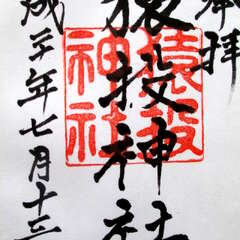 奉拝
猿投神社
猿投
神社
成三年七月十三